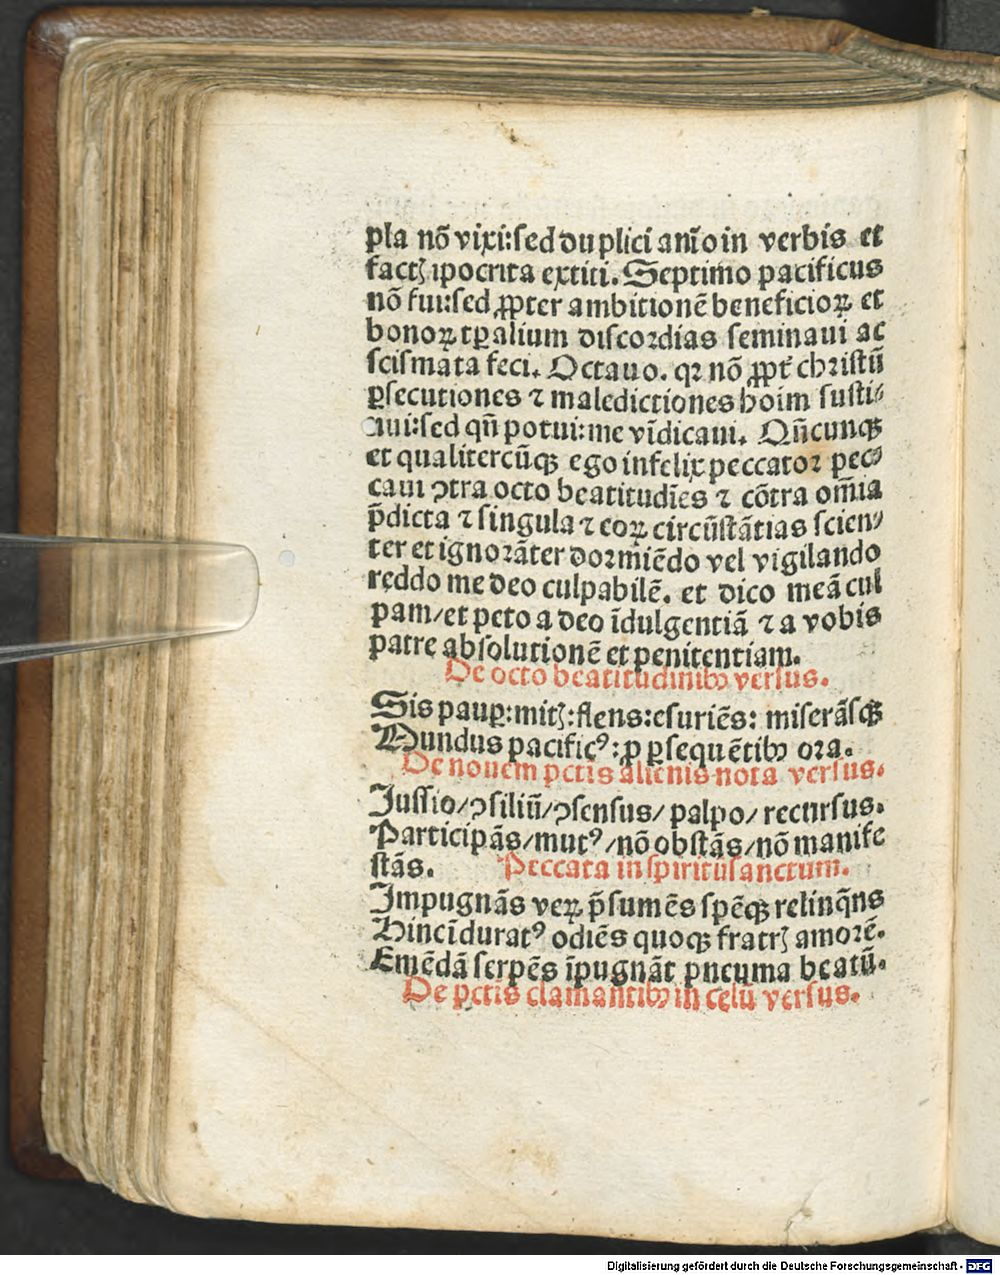 pla nō vixi:sed duplici aīo in verbis et
factꝭ ipocrita extiti. Septimo pacificus
nō fui:sed ꝓpter ambitionē beneficioꝝ et
bonoꝝ tꝑalium discordias seminaui ac
scismata feci. Octauo. qꝛ nō ꝓpt̄ christū
ꝑsecutiones ⁊ maledictiones hoīm susti⸗
nui:sed qn̄ potui:me vīdicaui. Qn̄cunqꝫ
et qualitercūqꝫ ego infelix peccator pec⸗
caui ꝯtra octo beatitudīes ⁊ cōtra oīnia
p̄dicta ⁊ singula ⁊ eoꝝ circūstātias scien⸗
ter et ignorāter dormiēdo vel vigilando
reddo me deo culpabilē. et dico meā cul
pam/et peto a deo īdulgentiā ⁊ a vobis
patre absolutionē et penitentiam.
De octo beatitudinibꝫ versus.
Sis pauꝑ:mitꝭ:flens:esuriēs: miserāsqꝫ
Mundus pacificꝰ:ꝓ ꝑsequētibꝫ ora.
De nouem pctīs alienis nota versus.
Jussio/ꝯsiliū/ꝯsensus/palpo/recursus.
Participās/mutꝰ/nō obstās/nō manife
stās.
Peccata in spiritūsanctum.
Impugnās veꝝ p̄sumēs spēqꝫ relinq̄ns
Hinc īduratꝰ odiēs quoqꝫ fratrꝭ amorē.
Emēdā serpēs īpugnāt pneuma beatū.
De pctīs clamantibꝫ in celū versus.
Digitalisierung gefördert durch die Deutsche Forschungsgemeinschaft - DFG